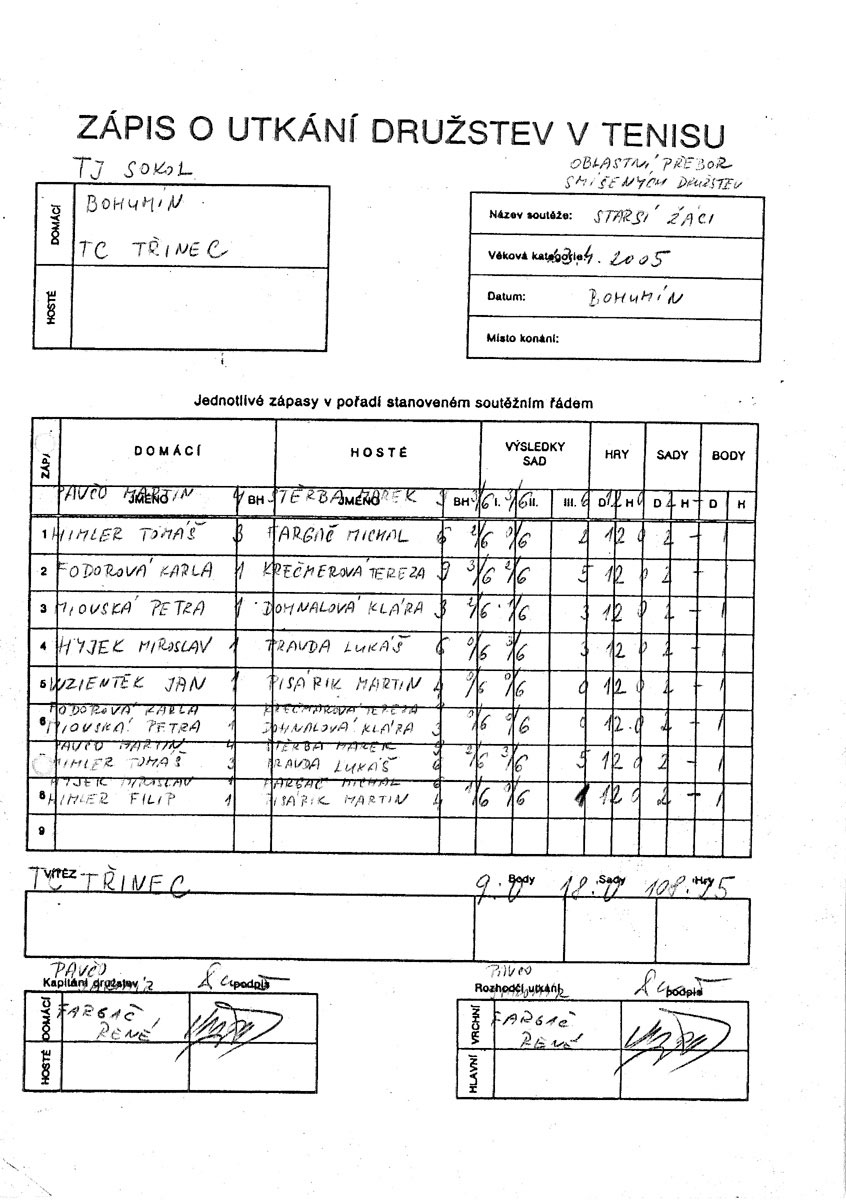 ZÁPIS O UTKÁNÍ DRUŽSTEV V TENISU
TJ SOKOL
BOHUMÍN
DOMÁCÍ
TC TŘINEC
HOSTÉ
OBLASTNÍ PŘEBOR
SMÍŠENÝCH DRUŽSTEV
Název soutěže: STARSÍ ŽÁCI
Věková kategorie: 23.4. 2005
Datum: BOHUMÍN
Místo konání:
Jednotlivé zápasy v pořadí stanoveném soutěžním řádem
ZÁP. DOMÁCÍ HOSTÉ VÝSLEDKY SAD HRY SADY BODY
JMÉNO BH JMÉNO BH I. II. III. D H D H D H
PAVČO MARTIN 4 ŠTĚRBA MAREK 9 3/6 3/6 6 12 0 2 -
1 HIMLER TOMÁŠ 3 FARGAČ MICHAL 6 2/6 0/6 2 12 0 2 - 1
2 FODOROVÁ KARLA 1 KREČMEROVÁ TEREZA 9 3/6 2/6 5 12 0 2 -
3 MIOVSKÁ PETRA 1 DOMNALOVÁ KLÁRA 3 2/6 1/6 3 12 0 2 - 1
4 HYJEK MIROSLAV 1 PRAVDA LUKÁŠ 6 0/6 3/6 3 12 0 2 - 1
5 WZIENTEK JAN 1 PISÁRIK MARTIN 4 0/6 0/6 0 12 0 2 - 1
FODOROVÁ KARLA 1 KREČMAROVÁ TEREZA
6 MIOVSKÁ PETRA 1 DOMNALOVÁ KLÁRA 3 0/6 0/6 0 12 0 2 - 1
PAVČO MARTIN 4 ŠTĚRBA MAREK 9
HIMLER TOMÁŠ 3 PRAVDA LUKÁŠ 6 2/6 3/6 5 12 0 2 - 1
HYJEK MIROSLAV 1 FARGAČ MICHAL 6
8 HIMLER FILIP 1 PISÁRIK MARTIN 4 1/6 0/6 1 12 0 2 - 1
9
VÍTĚZ TC TŘINEC Body 9:0 Sady 18:0 Hry 108:
PAVČO
Kapitáni družstev podpis
DOMÁCÍ FARGAČ
RENÉ
HOSTÉ
PAVČO
Rozhodčí utkání podpis
VRCHNÍ FARGAČ
RENÉ
HLAVNÍ